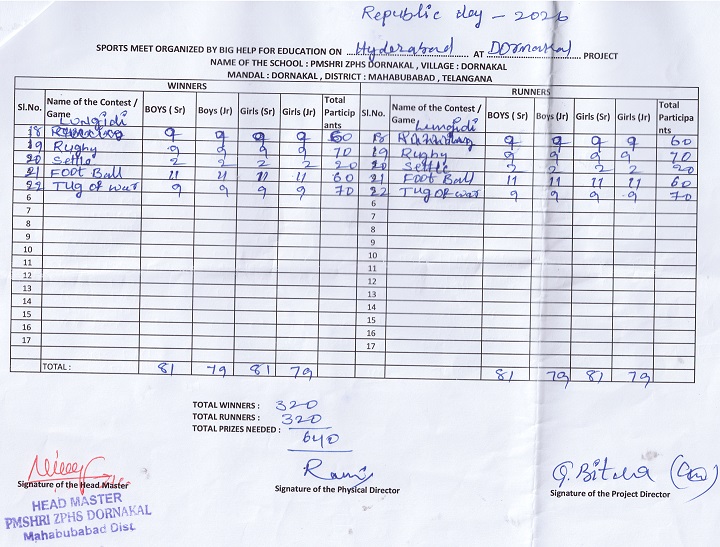 Republic day - 2026
SPORTS MEET ORGANIZED BY BIG HELP FOR EDUCATION ON Hyderabad AT Dornakal PROJECT
NAME OF THE SCHOOL : PMSHRI ZPHS DORNAKAL , VILLAGE : DORNAKAL
MANDAL : DORNAKAL , DISTRICT : MAHABUBABAD , TELANGANA
WINNERS RUNNERS
Sl.No. Name of the Contest / Game BOYS ( Sr) Boys (Jr) Girls (Sr) Girls (Jr) Total Particip ants Sl.No. Name of the Contest / Game BOYS ( Sr) Boys (Jr) Girls (Sr) Girls (Jr) Total Participa nts
Lungidi Lungidi
18 9 9 9 9 60 18 9 9 9 9 60
19 Rugby 9 9 9 9 70 19 Rugby 9 9 9 9 70
20 Settle 2 2 2 2 20 20 Settle 2 2 2 2 20
21 Foot Ball 11 11 11 11 60 21 Foot Ball 11 11 11 11 60
22 Tug of war 9 9 9 9 70 22 Tug of war 9 9 9 9 70
6 6
7 7
8 8
9 9
10 10
11 11
12 12
13 13
14 14
15 15
16 16
17 17
TOTAL : 81 79 81 79 81 79 81 79
TOTAL WINNERS : 320
TOTAL RUNNERS : 320
TOTAL PRIZES NEEDED : 640
Ravi G. Bitcha
Signature of the Head Master Signature of the Physical Director Signature of the Project Director
HEAD MASTER
PMSHRI ZPHS DORNAKAL
Mahabubabad Dist